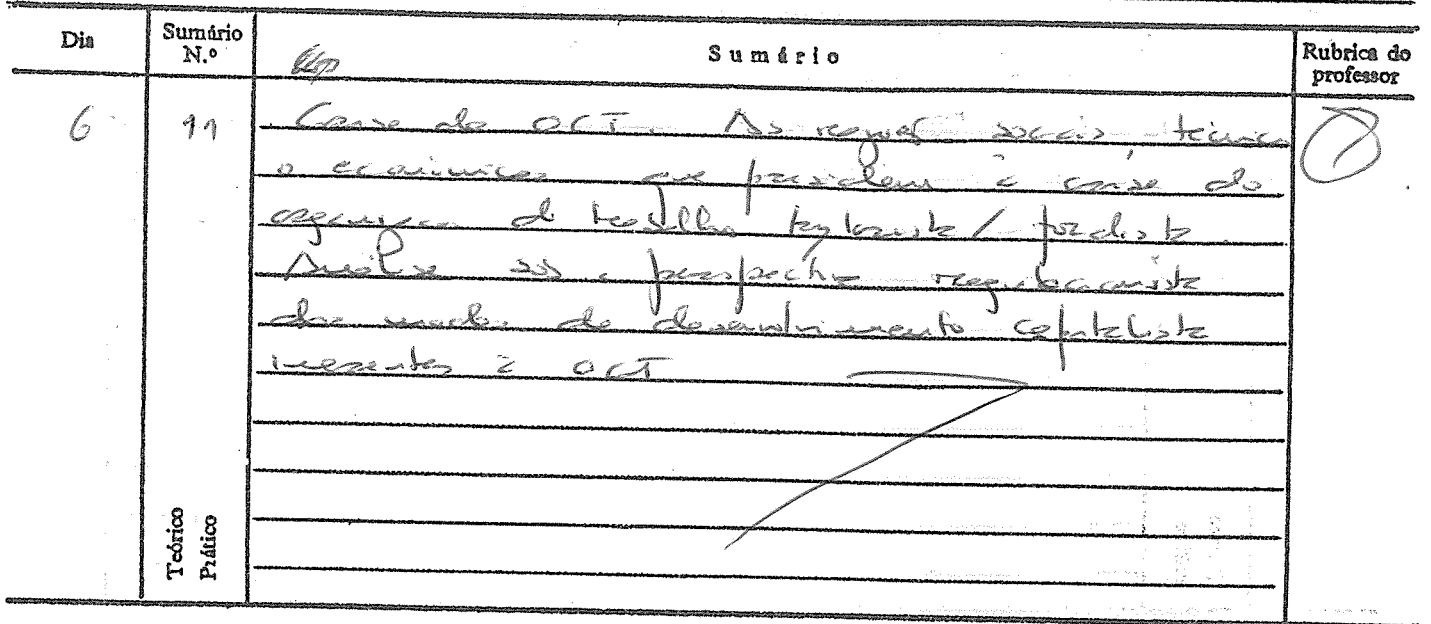 Dia Sumário N.º Sumário Rubrica do professor
6 11 Crise da OCT. As razões sociais, técnicas
e económicas que presidem à crise da
organização do trabalho taylorista/fordista.
Análise sob a perspectiva regulacionista
dos modos de desenvolvimento capitalista
inerentes à OCT
Teórico
Prático